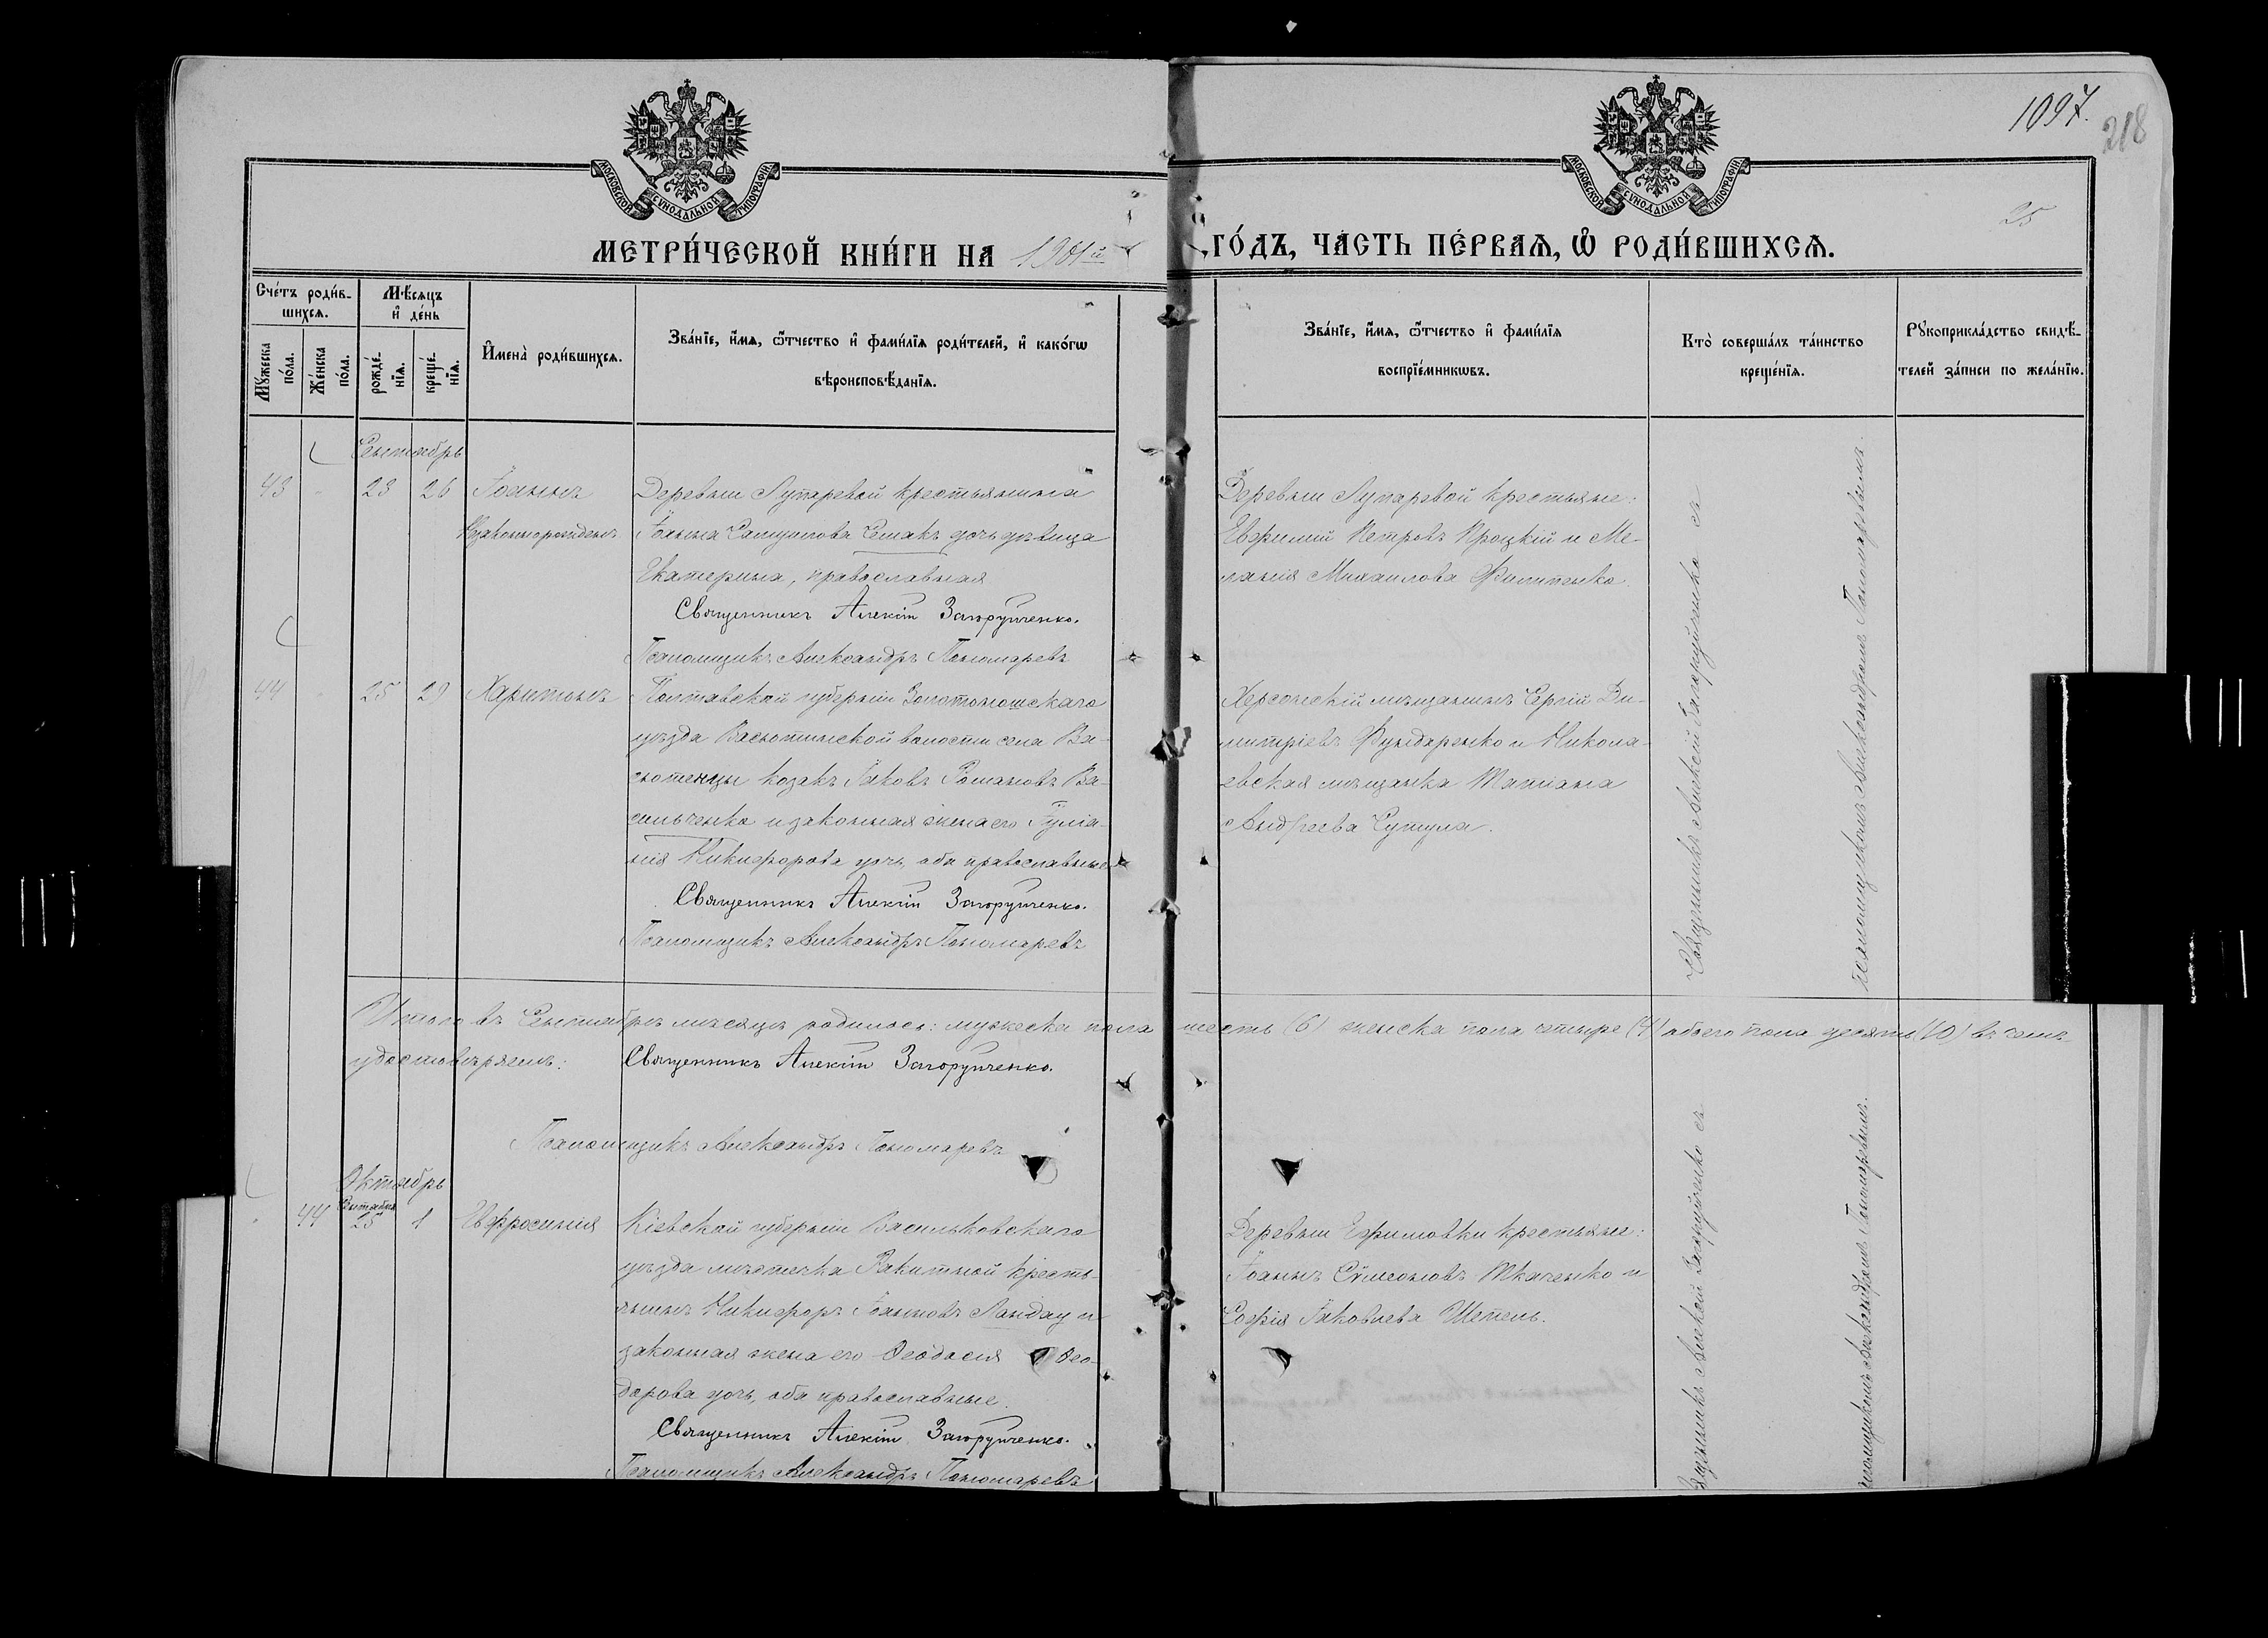 1097.
218
25
МОСКОВСКОЙ СУНОДАЛЬНОЙ ТИПОГРАФІИ
МОСКОВСКОЙ СУНОДАЛЬНОЙ ТИПОГРАФІИ
МЕТРИ́ЧЕСКОЙ КНИ́ГИ НА 1901й ГО́ДЪ, ЧА́СТЬ ПЕ́РВАЯ, Ѡ҆ РОДИ́ВШИХСЯ.
Сче́тъ роди́в-
шихся.
Мꙋ́жеска по́ла.
Же́нска по́ла.
Мѣ́сяцъ
и҆ де́нь
рожде́-нїя.
креще́-нїя.
И҆мена̀ роди́вшихся.
Зва́нїе, и҆́мя, ѻ҆́тчество и҆ фами́лїя роди́телей, и҆ како́гѡ
вѣроисповѣ́данїя.
Зва́нїе, и҆́мя, ѻ҆́тчество и҆ фами́лїя
воспрїе́мникѡвъ.
Кто̀ соверша́лъ та́инство
креще́нїя.
Рꙋкоприкла́дство свидѣ́-
телей за́писи по жела́нїю.
Сентябрь
43 - 23 26 Іоаннъ
Незаконнорожденъ
Деревни Лупаревой крестьянина
Іоанна Самуилова Семакъ дочь дѣвица
Екатерина, православная
Священникъ Алексій Загоруйченко.
Псаломщикъ Александръ Пономаревъ
Деревни Лупаревой крестьяне:
Евфимій Петровъ Процкій и Ме-
ланія Михаилова Филипенко.
44 - 25 29 Харитонъ
Полтавской губерніи Золотоношскаго
уѣзда Васютинской волости села Ва-
сютенцы козакъ Іаковъ Романовъ Ва-
сильченко и законная жена его Іуліа-
нія Никифорова дочь, оба православные
Священникъ Алексій Загоруйченко.
Псаломщикъ Александръ Пономаревъ
Херсонскій мѣщанинъ Сергій Ди-
митріевъ Фундаренко и Никола-
евская мѣщанка Татіана
Андреева Сутула.
Священникъ Алексій Загоруйченко съ
псаломщикомъ Александромъ Пономаревымъ.
Итого въ Сентябрѣ мѣсяцѣ родилось: мужеска пола шесть (6) женска пола четыре (4) обоего пола десять (10) въ чемъ
удостовѣряемъ: Священникъ Алексій Загоруйченко.
Псаломщикъ Александръ Пономаревъ
Октябрь
Сентября
44 25 1 Евфросинія
Кіевской губерніи Васильковскаго
уѣзда мѣстечка Ракитной кресть-
янинъ Никифоръ Іоанновъ Ландау и
законная жена его Ѳеодосія Ѳео-
дорова дочь, оба православные.
Священникъ Алексій Загоруйченко.
Псаломщикъ Александръ Пономаревъ
Деревни Ефимовки крестьяне:
Іоаннъ Сѵмеоновъ Ткаченко и
Софія Іаковлева Шепель.
Священникъ Алексій Загоруйченко съ
псаломщикомъ Александромъ Пономаревымъ.